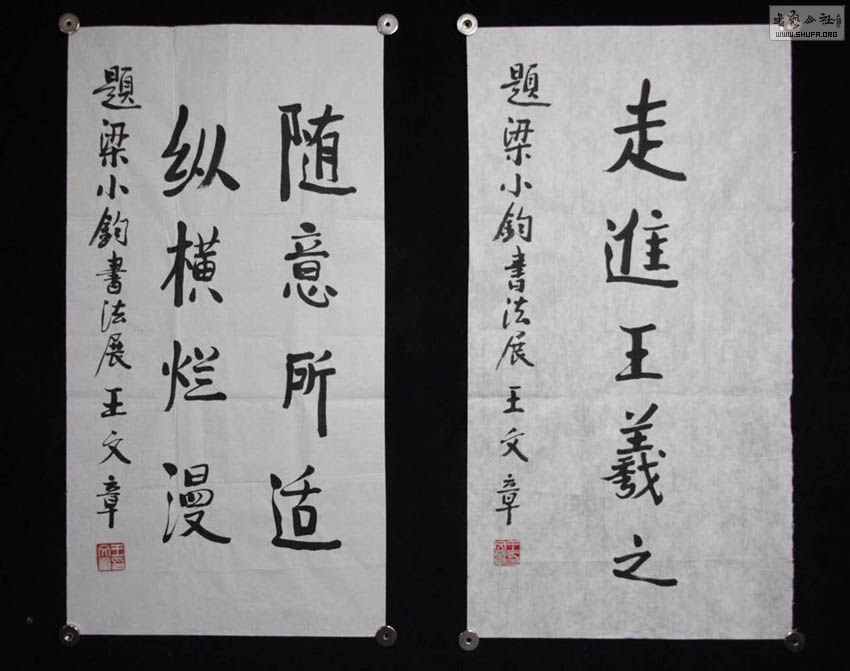 走進王羲之
題梁小鈞書法展 王文章
随意所适
纵横烂漫
題梁小鈞書法展 王文章
書藝公社
WWW.SHUFA.ORG